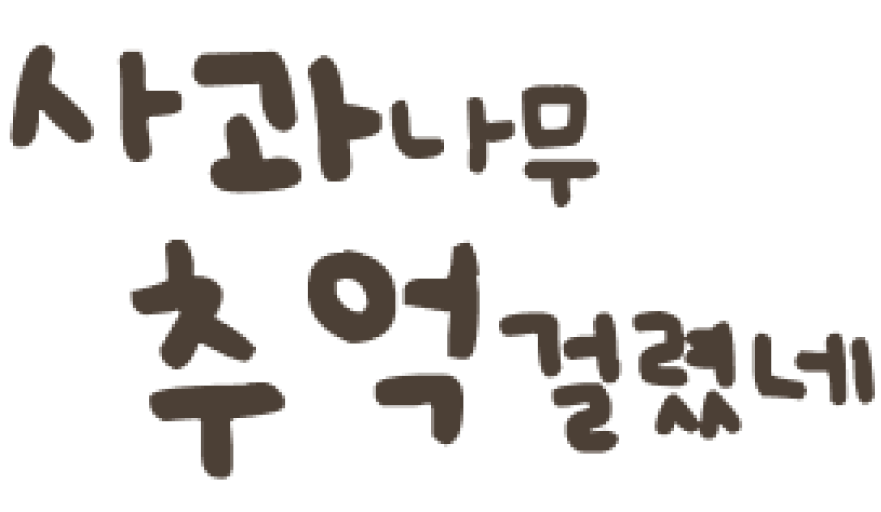 사과나무
추억걸렸네